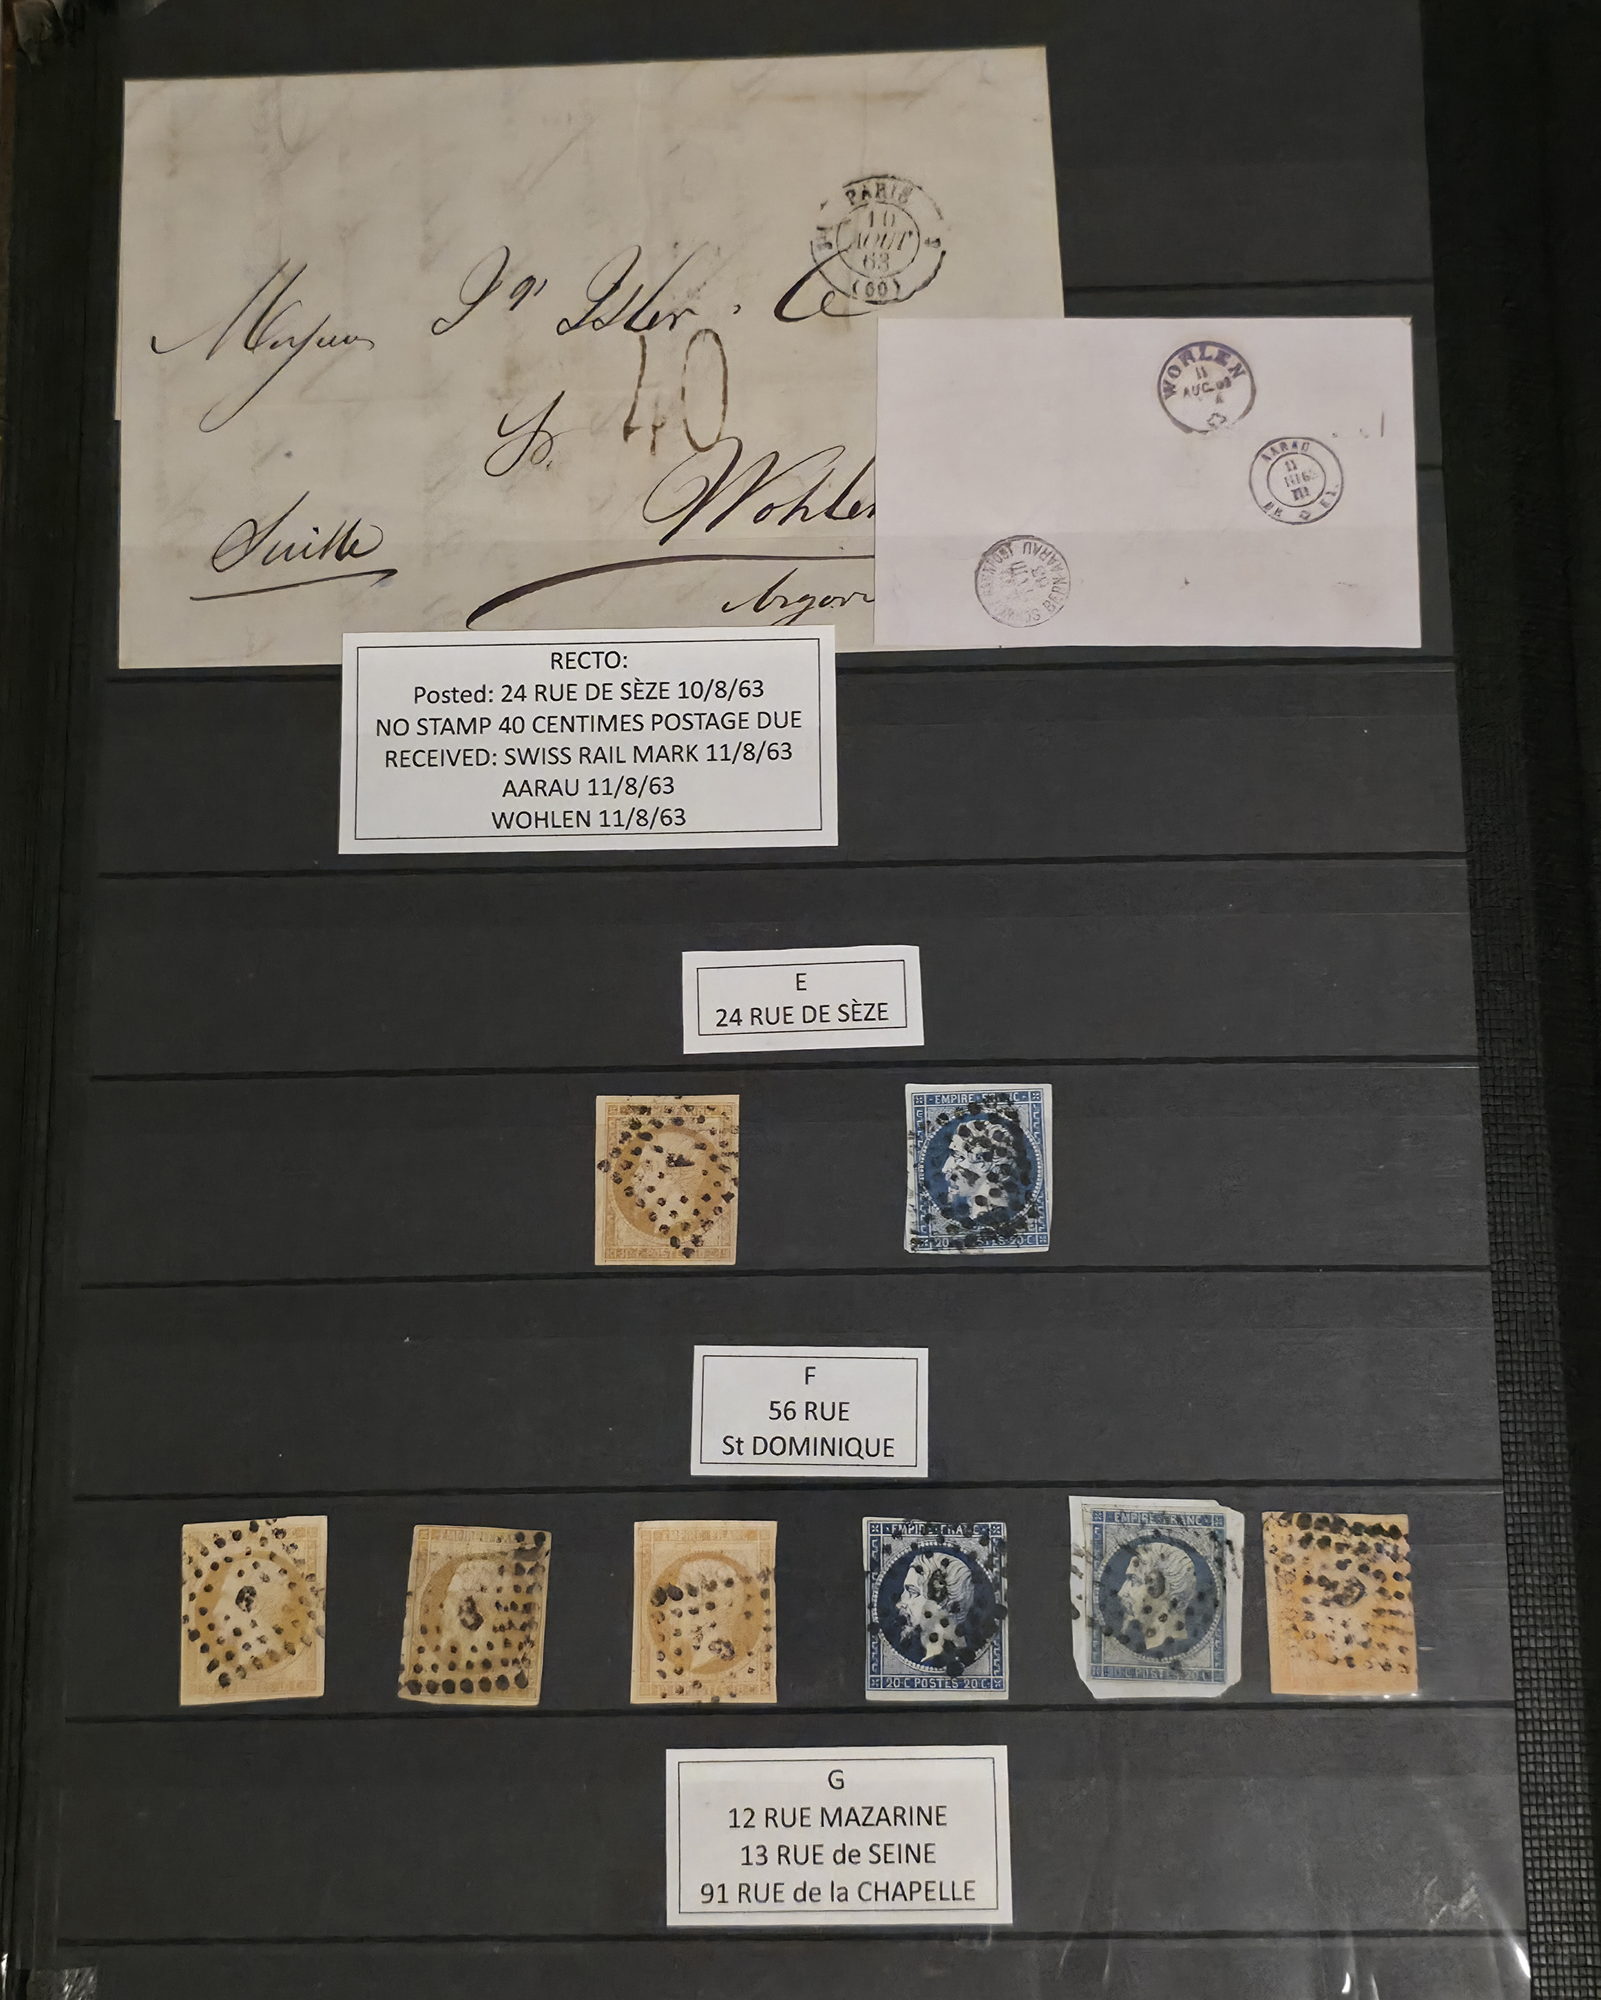 PARIS
10
AOUT
63
(60)
40
Wohlen
WOHLEN
11
AARAU
11
III
BERN AARAU
RECTO:
Posted: 24 RUE DE SÈZE 10/8/63
NO STAMP 40 CENTIMES POSTAGE DUE
RECEIVED: SWISS RAIL MARK 11/8/63
AARAU 11/8/63
WOHLEN 11/8/63
E
24 RUE DE SÈZE
EMPIRE FRANC
20 POSTES 20 C
F
56 RUE
St DOMINIQUE
EMPIRE FRANC
EMPIRE FRANC
EMPIRE FRANC
20 C POSTES 20 C
20 C POSTES 20 C
G
12 RUE MAZARINE
13 RUE de SEINE
91 RUE de la CHAPELLE